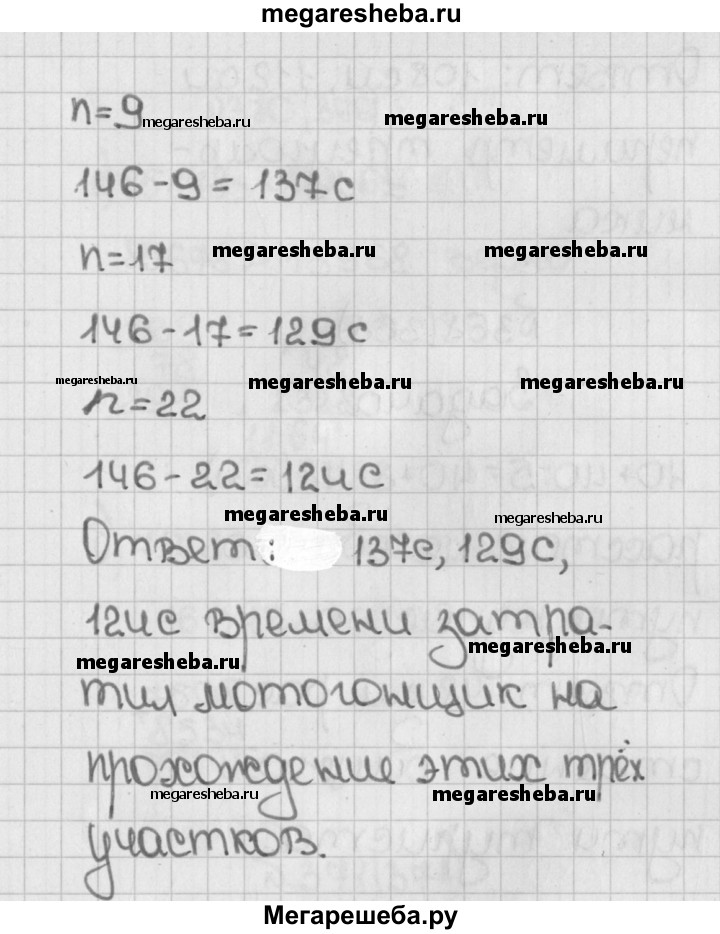 megaresheba.ru
n=9 megaresheba.ru megaresheba.ru
146-9=137с
n=17 megaresheba.ru megaresheba.ru
146-17=129с
megaresheba.ru megaresheba.ru megaresheba.ru
n=22
146-22=124с
megaresheba.ru megaresheba.ru
Ответ: 137с, 129с,
124с времени затра-
megaresheba.ru megaresheba.ru
тил мотогонщик на
прохождение этих трёх
megaresheba.ru megaresheba.ru
участков.
Мегарешеба.ру